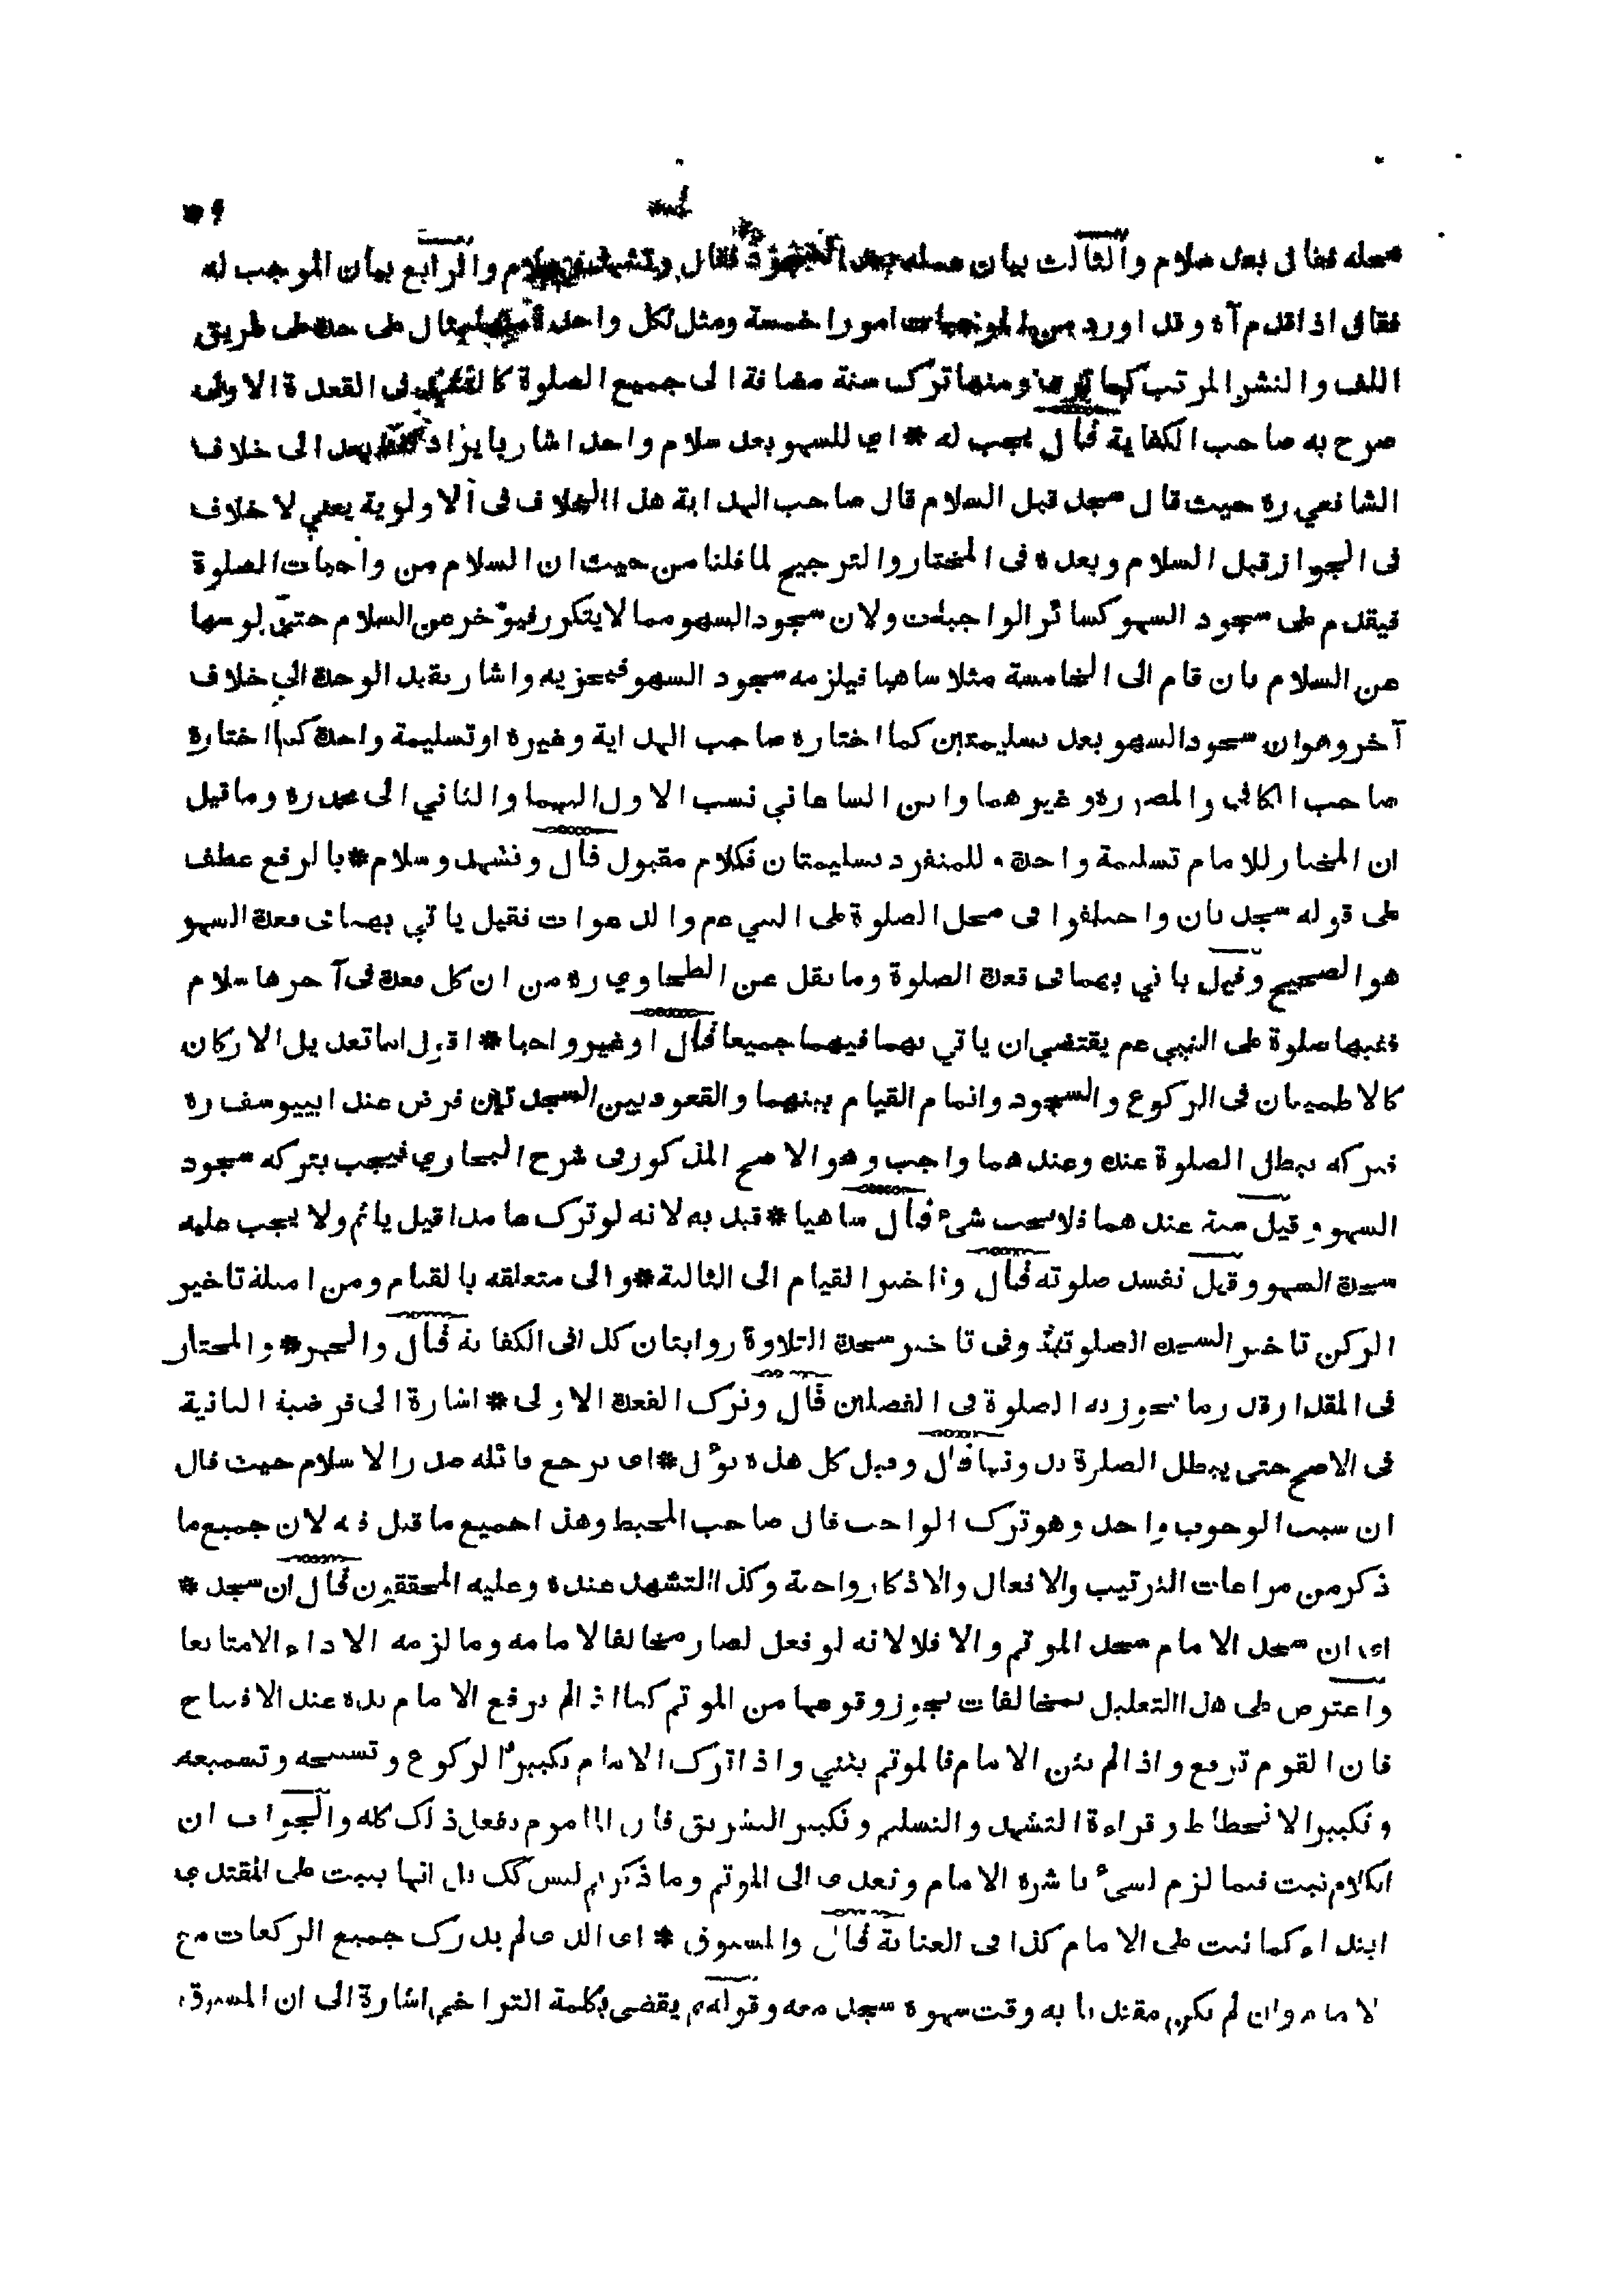 محله فقال بعد سلام والثالث بيان عمله بعد فقال وتشهد وسلام والرابع بيان الموجب له
فقال اذا قدم آه وقد اورد من الموجبات امورا خمسة ومثل لكل واحد مثال على حدة على طريق
اللف والنشر المرتب كما ترى ومنها ترك سنة مضافة الى جميع الصلوة كالتشهد فى القعدة الاولى
صرح به صاحب الكفاية قال يجب له * اى للسهو بعد سلام واحد اشار بايراد بعد الى خلاف
الشافعي ره حيث قال سجد قبل السلام قال صاحب الهداية هذا الخلاف فى الاولوية يعني لا خلاف
فى الجواز قبل السلام وبعده فى المختار والترجيح لما قلنا من حيث ان السلام من واجبات الصلوة
فيقدم على سجود السهو كسائر الواجبات ولان سجود السهو مما لا يتكرر فيؤخر عن السلام حتى لو سها
عن السلام بان قام الى الخامسة مثلا ساهيا فيلزمه سجود السهو فيجزيه واشار بقيد الوحدة الى خلاف
آخر وهو ان سجود السهو بعد تسليمتين كما اختاره صاحب الهداية وغيره او تسليمة واحدة كما اختاره
صاحب الكافى والمصر ره وغيرهما وابن الساعاتي نسب الاول اليهما والثاني الى محمد ره وما قيل
ان المختار للامام تسليمة واحدة وللمنفرد تسليمتان فكلام مقبول قال وتشهد وسلام * بالرفع عطف
على قوله سجدتان واختلفوا فى محل الصلوة على النبي عم والدعوات فقيل ياتي بهما فى قعدة السهو
هو الصحيح وقيل ياتي بهما فى قعدة الصلوة وما نقل عن الطحاوي ره من ان كل قعدة فى آخرها سلام
ففيها صلوة على النبي عم يقتضي ان ياتي بهما فيهما جميعا قال اوغير واجبا * اقول اما تعديل الاركان
كالاطمينان فى الركوع والسجود واتمام القيام بينهما والقعود بين السجدتين فرض عند ابييوسف ره
فبتركه يبطل الصلوة عنده وعندهما واجب وهو الاصح المذكور فى شرح البخاري فيجب بتركه سجود
السهو وقيل سنة عندهما فلا يجب شىء قال ساهيا * قيد به لانه لو ترك عامدا قيل ياثم ولا يجب عليه
سجدة السهو وقيل تفسد صلوته قال واخر القيام الى الثالثة * والى متعلقه بالقيام ومن امثلة تاخير
الركن تاخير السجدة الصلوتية وفى تاخير سجدة التلاوة روايتان كذا فى الكفاية قال والجهر * والمختار
فى المقدار قدر ما تجوز به الصلوة فى الفصلين قال وترك القعدة الاولى * اشارة الى فرضية الثانية
فى الاصح حتى يبطل الصلوة بدونها قال وقيل كل هذه يؤل * اى يرجع قائله صدر الاسلام حيث قال
ان سبب الوجوب واحد وهو ترك الواجب قال صاحب المحيط وهذا جميع ما قيل فيه لان جميع ما
ذكر من مراعات الترتيب والافعال والاذكار واجبة وكذا التشهد عنده وعليه المحققون قال ان سجد *
اى ان سجد الامام سجد الموتم والا فلا لانه لو فعل لصار مخالفا لامامه وما لزمه الاداء الا متابعا
واعترض على هذا التعليل بمخالفات يجوز وقوعها من الموتم كما اذا لم يرفع الامام يده عند الافتتاح
فان القوم ترفع واذا لم يثن الامام فالموتم يثني واذا ترك الامام تكبير الركوع وتسبيحه وتسميعه
وتكبير الانحطاط وقراءة التشهد والتسليم وتكبير التشريق فان الماموم يفعل ذلك كله والجواب ان
الكلام ثبت فيما لزم لسىء باشره الامام وتعدى الى الموتم وما ذكرتم ليس كك بل انها يثبت على المقتدي
ابتداء كما ثبت على الامام كذا فى العناية قال والمسبوق * اى الذى لم يدرك جميع الركعات مع
الامام وان لم يكن مقتديا به وقت سهوه سجد معه وقوله ثم يقضى بكلمة التراخي اشارة الى ان المسبوق